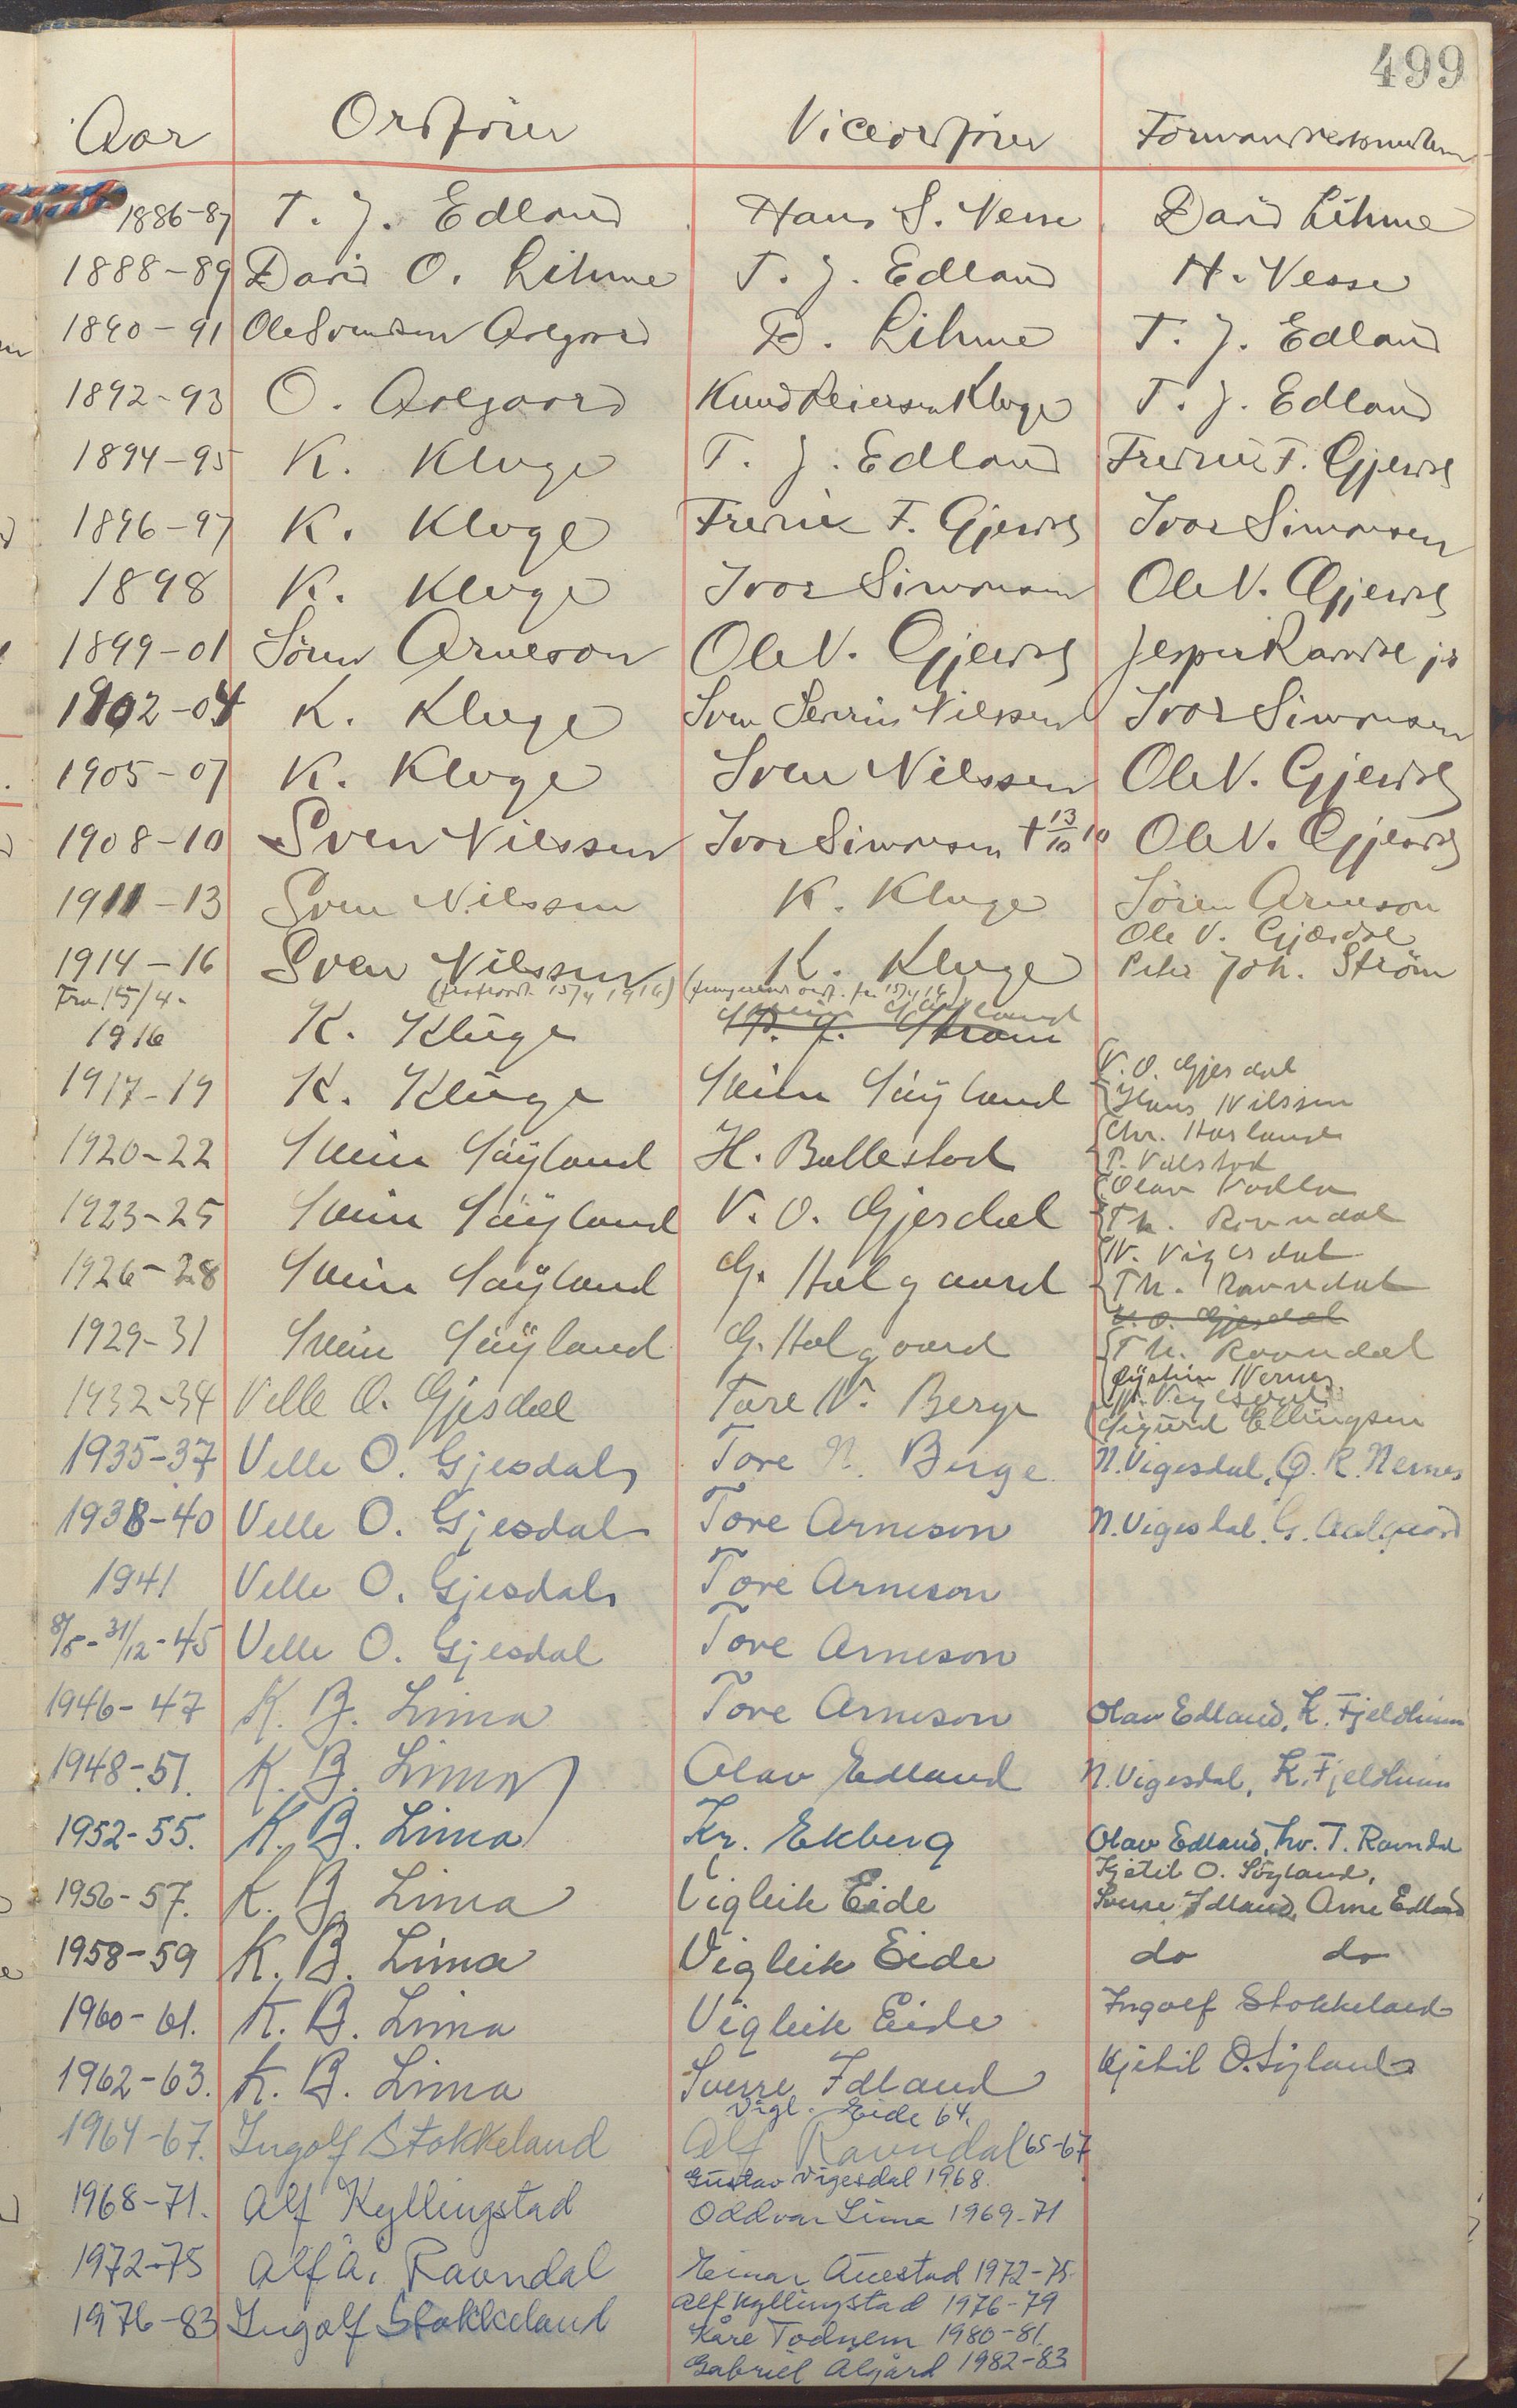 499
Aar Ordfører Viceordfører Formandskabsmedlem
1886-87 T. J. Edland Hans S. Nesse David Lihme
1888-89 David O. Lihme T. J. Edland H. Nesse
1890-91 Ole Svendsen Aalgaard D. Lihme T. J. Edland
1892-93 O. Aalgaard Knud Reiersen Kluge T. J. Edland
1894-95 K. Kluge T. J. Edland Fredrik F. Gjesdal
1896-97 K. Kluge Fredrik F. Gjesdal Ivar Simonsen
1898 K. Kluge Ivar Simonsen Ole V. Gjesdal
1899-01 Sören Arneson Ole V. Gjesdal Jesper Ravndal jr
1902-04 K. Kluge Sven Severin Nilssen Ivar Simonsen
1905-07 K. Kluge Sven Nilssen Ole V. Gjesdal
1908-10 Sven Nilssen Ivar Simonsen † 13/10 10 Ole V. Gjesdal
1911-13 Sven Nilssen K. Kluge Sören Arneson
Ole V. Gjesdal
1914-16 Sven Nilssen K. Kluge Peter Joh. Ström
Fra 15/4- (fraflyttet 15/4 1916) (fungerende ordf. fra 15/4 16)
Svein Söyland
1916 K. Kluge P. J. Strøm
V. O. Gjesdal
1917-19 K. Kluge Svein Söyland Hans Nilssen
Chr. Hasland
1920-22 Svein Söyland H. Ballestad P. Válstad
Olav Vadla
1923-25 Svein Söyland V. O. Gjesdal Th. Ravndal
N. Vigesdal
1926-28 Svein Söyland G. Aalgaard Th. Ravndal
V. O. Gjesdal
1929-31 Svein Söyland G. Aalgaard Th. Ravndal
Øystein Nernes
N. Vigesdal
1932-34 Velle O. Gjesdal Tore N. Berge Sigurd Ellingsen
1935-37 Velle O. Gjesdal Tore N. Berge N. Vigesdal, Ø. R. Nernes
1938-40 Velle O. Gjesdal Tore Arneson N. Vigesdal. G. Aalgaard
1941 Velle O. Gjesdal Tore Arneson
8/5-31/12-45 Velle O. Gjesdal Tore Arneson
1946-47 K. B. Lima Tore Arneson Olav Edland, K. Fjeldheim
1948-51. K. B. Lima Olav Edland N. Vigesdal, K. Fjeldheim
1952-55. K. B. Lima Kr. Ekberg Olav Edland, Thv. T. Ravndal
Kjetil O. Söyland,
1956-57. K. B. Lima Vigleik Eide Sverre Idland, Arne Edland
1958-59 K. B. Lima Vigleik Eide do do
1960-61. K. B. Lima Vigleik Eide Ingolf Stokkeland
1962-63. K. B. Lima Sverre Idland Kjetil O. Söyland
Vigl. Eide 64.
1964-67. Ingolf Stokkeland Alf Ravndal 65-67
Gustav Vigesdal 1968.
1968-71. Alf Kyllingstad Oddvar Lima 1969-71
1972-75 Alf A. Ravndal Einar Auestad 1972-75.
Alf Kyllingstad 1976-79
1976-83 Ingolf Stokkeland Kåre Todnem 1980-81.
Gabriel Ålgård 1982-83